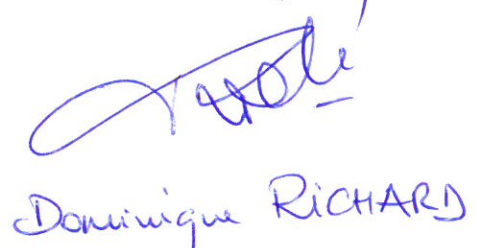 Dominique RICHARD